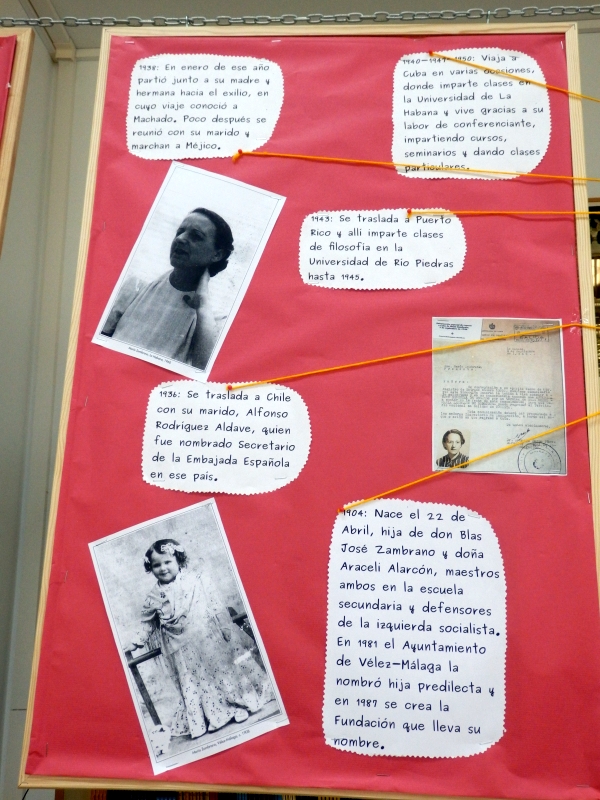 1938: En enero de ese año
partió junto a su madre y
hermana hacia el exilio, en
cuyo viaje conoció a
Machado. Poco después se
reunió con su marido y
marchan a Méjico.
1940-1941-1950: Viaja a
Cuba en varias ocasiones,
donde imparte clases en
la Universidad de La
Habana y vive gracias a su
labor de conferenciante,
impartiendo cursos,
seminarios y dando clases
particulares.
1943: Se traslada a Puerto
Rico y alli imparte clases
de filosofía en la
Universidad de Rio Piedras
hasta 1945.
1936: Se traslada a Chile
con su marido, Alfonso
Rodriguez Aldave, quien
fue nombrado Secretario
de la Embajada Española
en ese país.
1904: Nace el 22 de
Abril, hija de don Blas
José Zambrano y doña
Araceli Alarcón, maestros
ambos en la escuela
secundaria y defensores
de la izquierda socialista.
En 1981 el Ayuntamiento
de Vélez-Málaga la
nombró hija predilecta y
en 1987 se crea la
Fundación que lleva su
nombre.